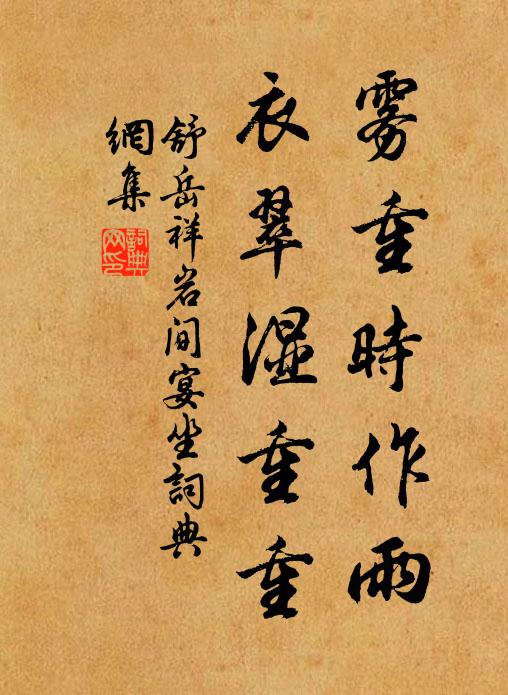 雾重時作雨
衣翠湿重重
舒岳祥岩间宴坐詞典
網集
詞典
网印